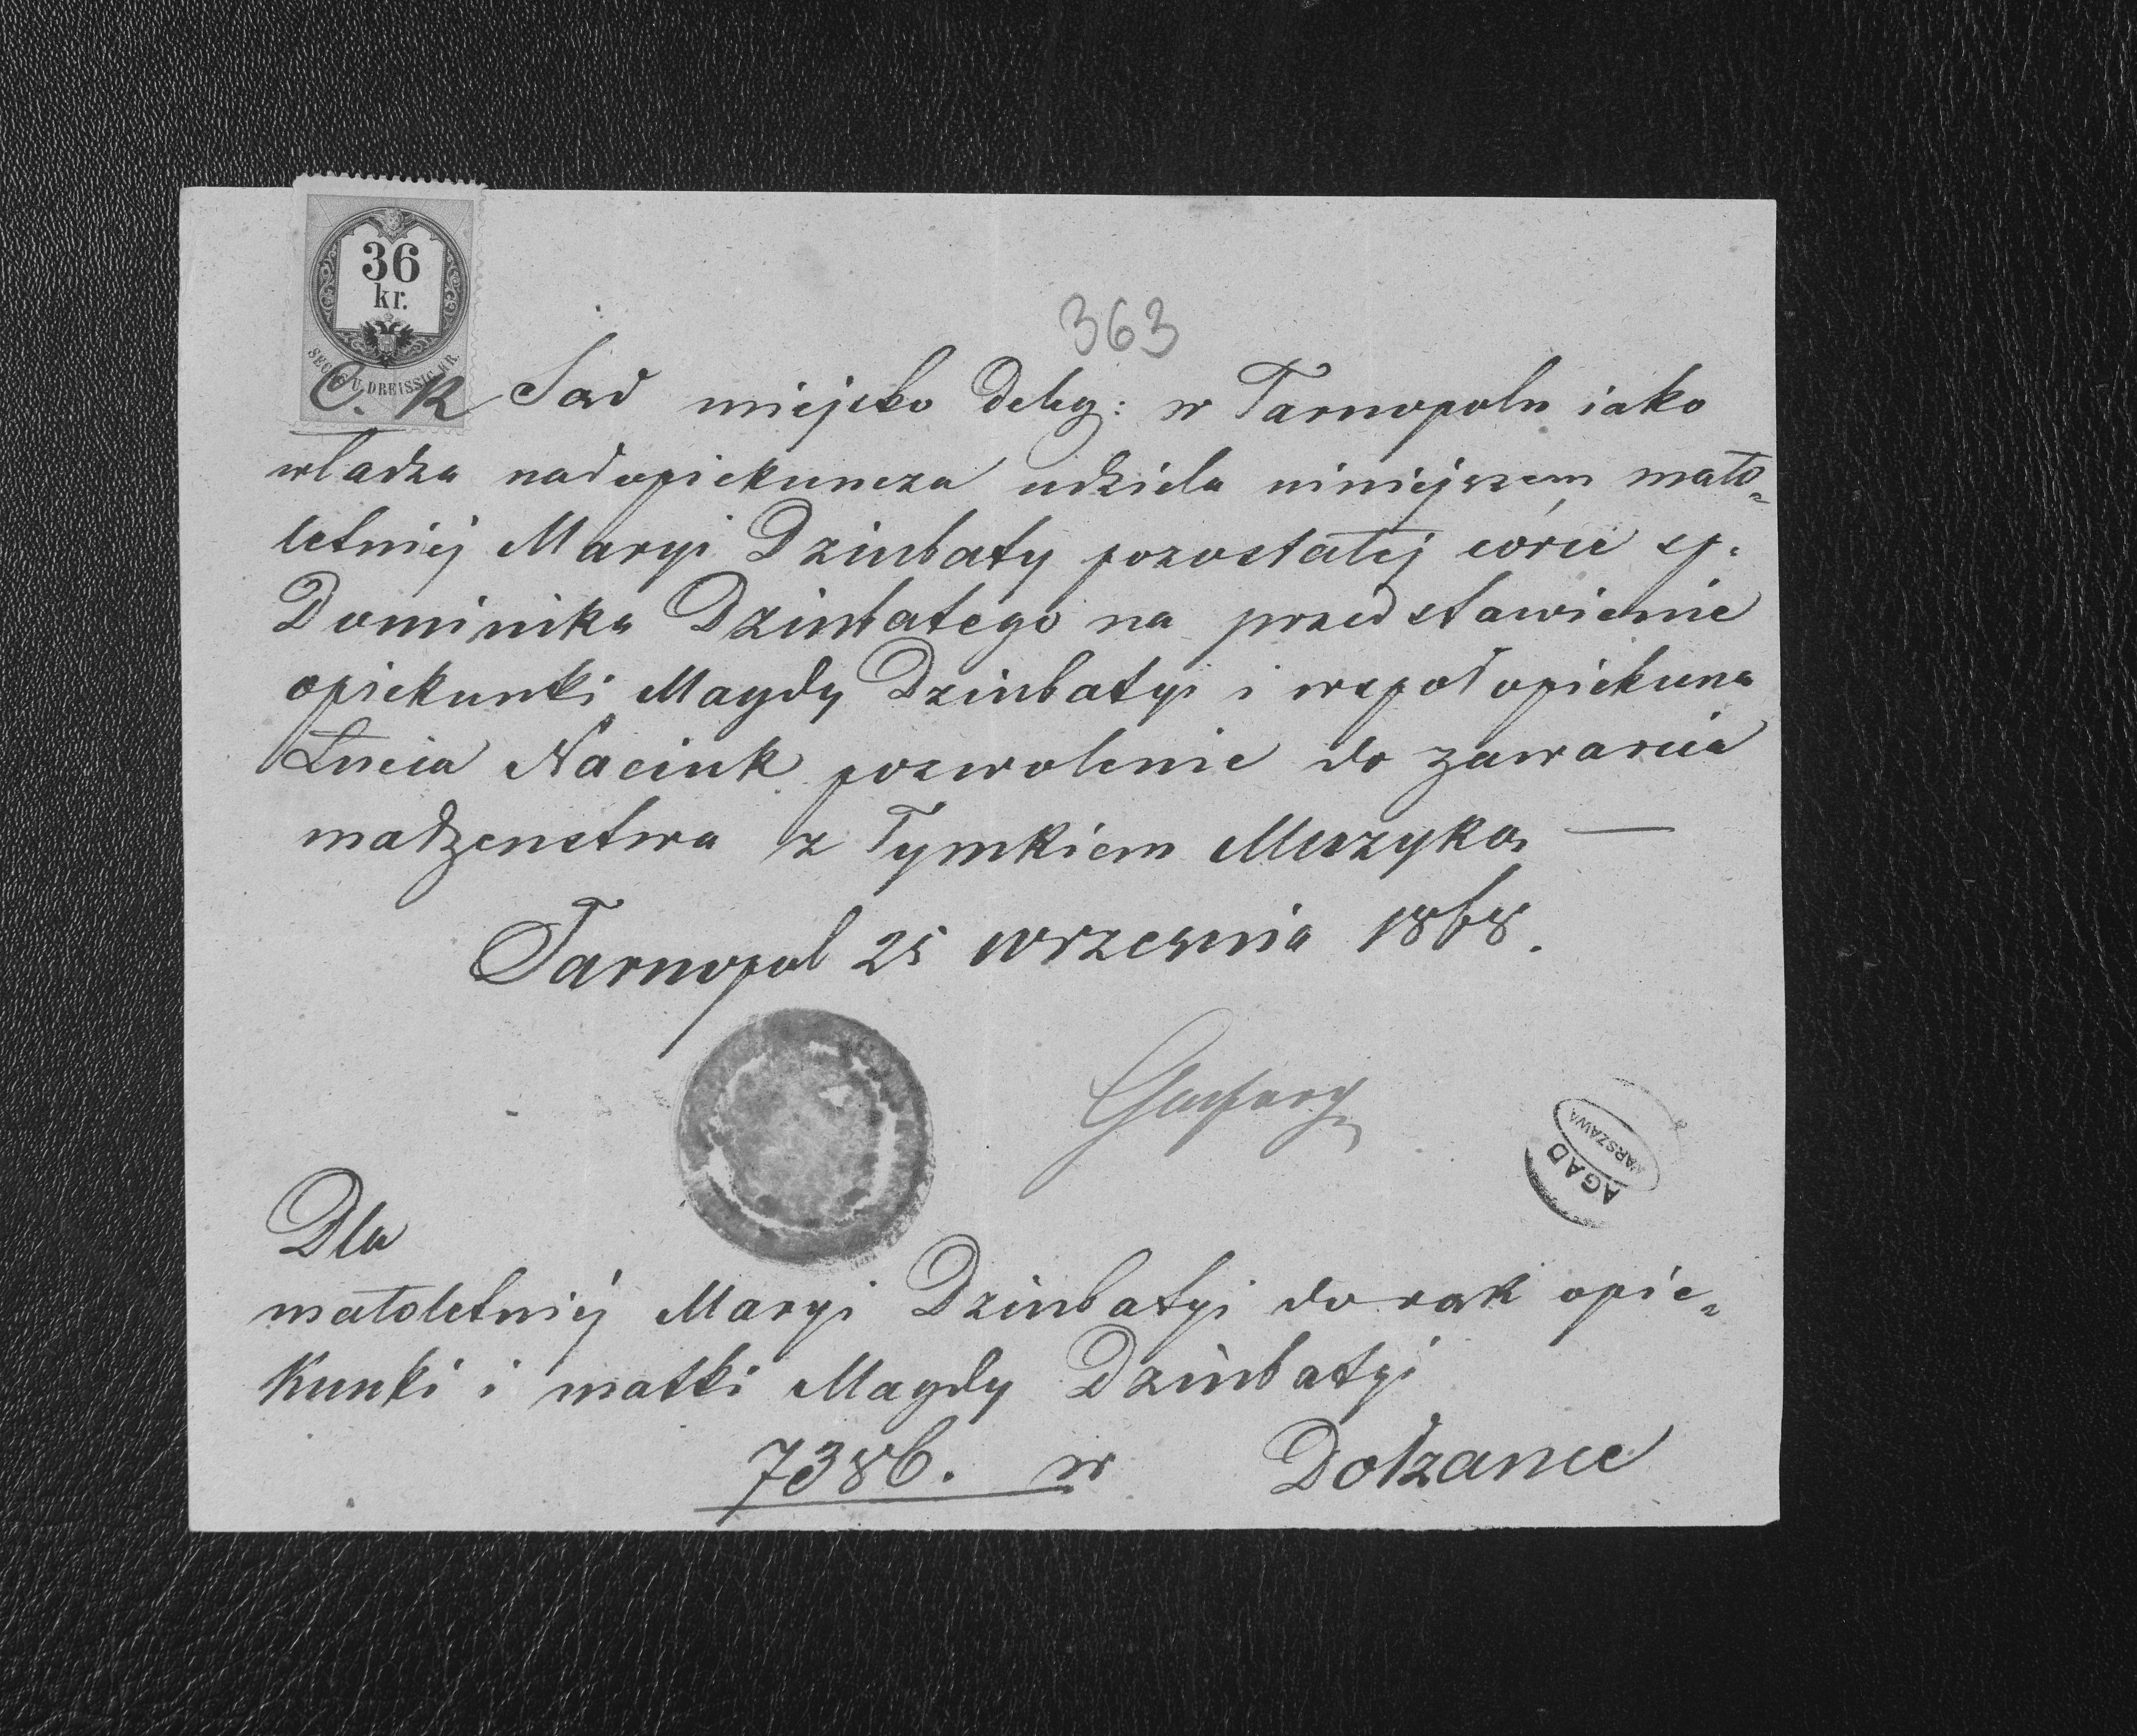 36
kr.
SECHS U. DREISSIG KR.
363
C. K Sąd miejsko deleg: w Tarnopolu iako
władza nadopiekuncza udziela niniejszem mało=
letniej Maryi Dziubaty pozostałej córce sp.
Dominika Dziubatego na przedstawienie
opiekunki Magdy Dziubatyi i wspoł opiekuna
Łucia Naciuk pozwolenie do zawarcia
małzenstwa z Tymkiem Muzyką —
Tarnopol 25 wrzesnia 1868.
AGAD
WARSZAWA
Dla
małoletniej Maryi Dziubatyi do rąk opie=
kunki i matki Magdy Dziubatyi
7386. w Dołzance